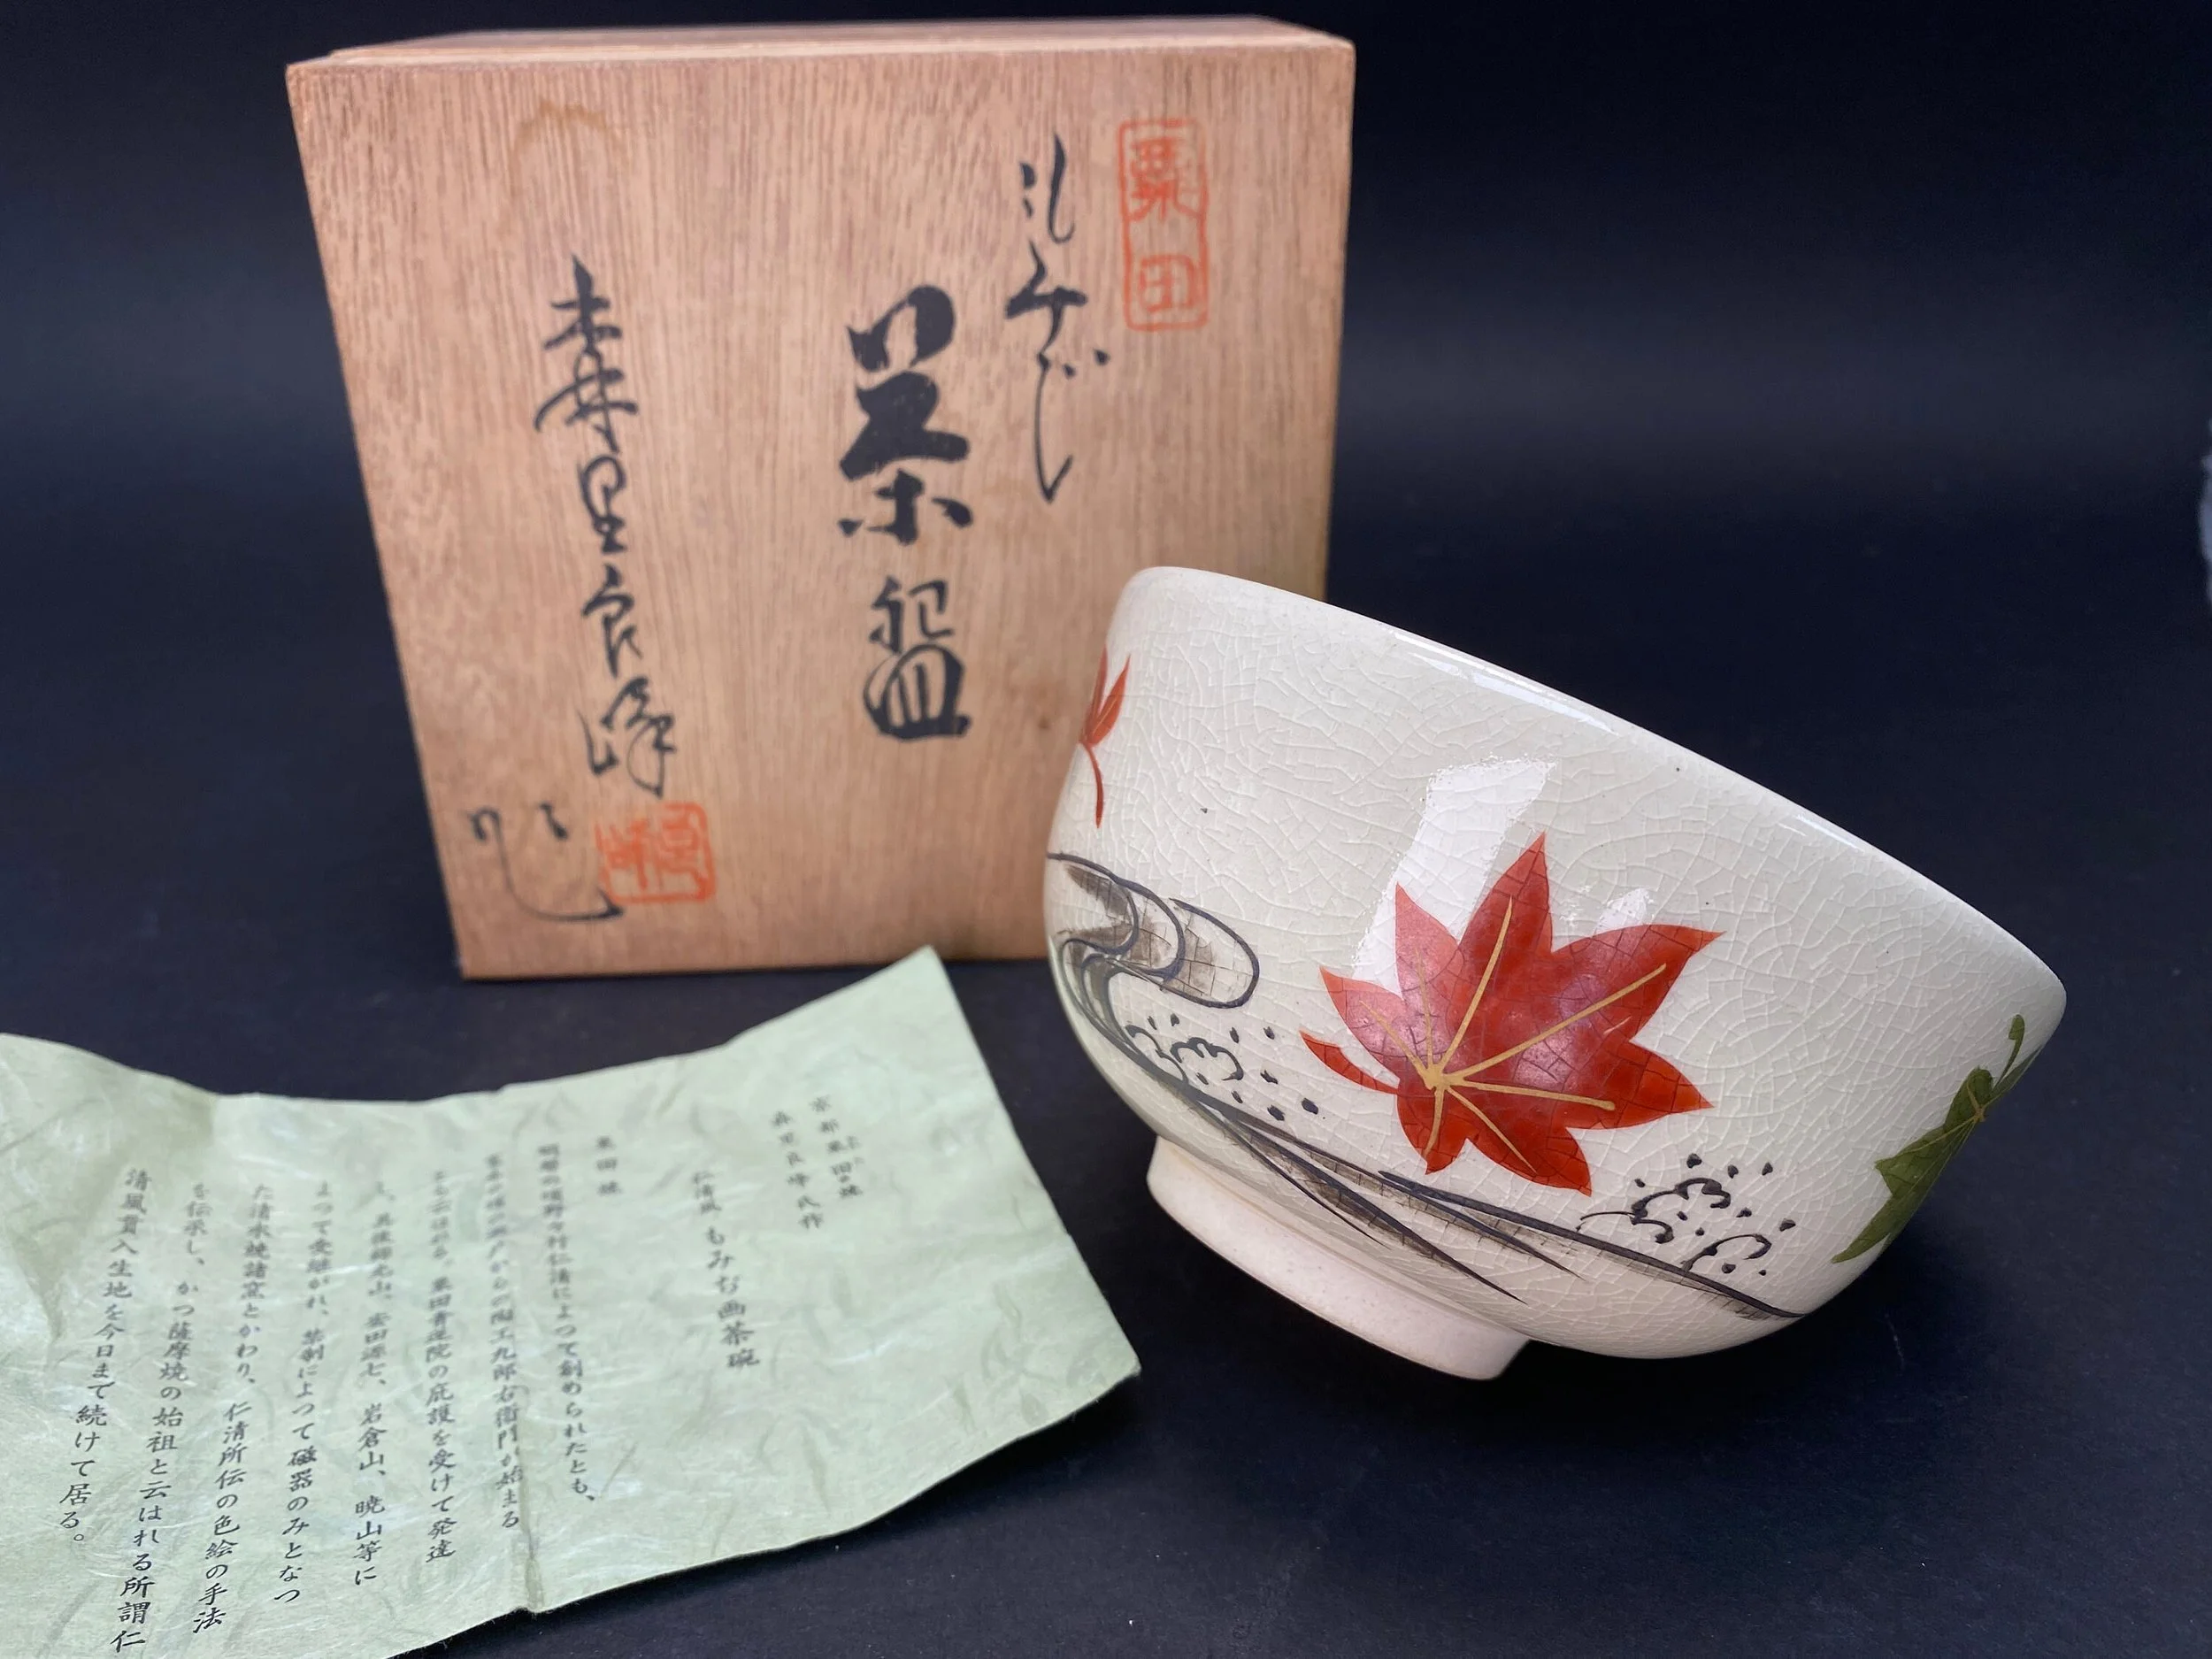 粟田
もみじ
茶盌
森里良峰
作
良峰
京都粟田焼
森里良峰氏作
仁清風 もみぢ画茶碗
粟田焼
明暦の頃野々村仁清によつて創められたとも、
の頃の瀬戸からの陶工九郎右衛門が始まる
とも云はれる。粟田青蓮院の庇護を受けて発達
し、其後錦光山、宝田源七、岩倉山、暁山等に
よつて受継がれ、によつて磁器のみとなつ
た清水焼諸窯とかわり、仁清所伝の色絵の手法
を伝承し、かつ薩摩焼の始祖と云はれる所謂仁
清風貫入生地を今日まで続けて居る。